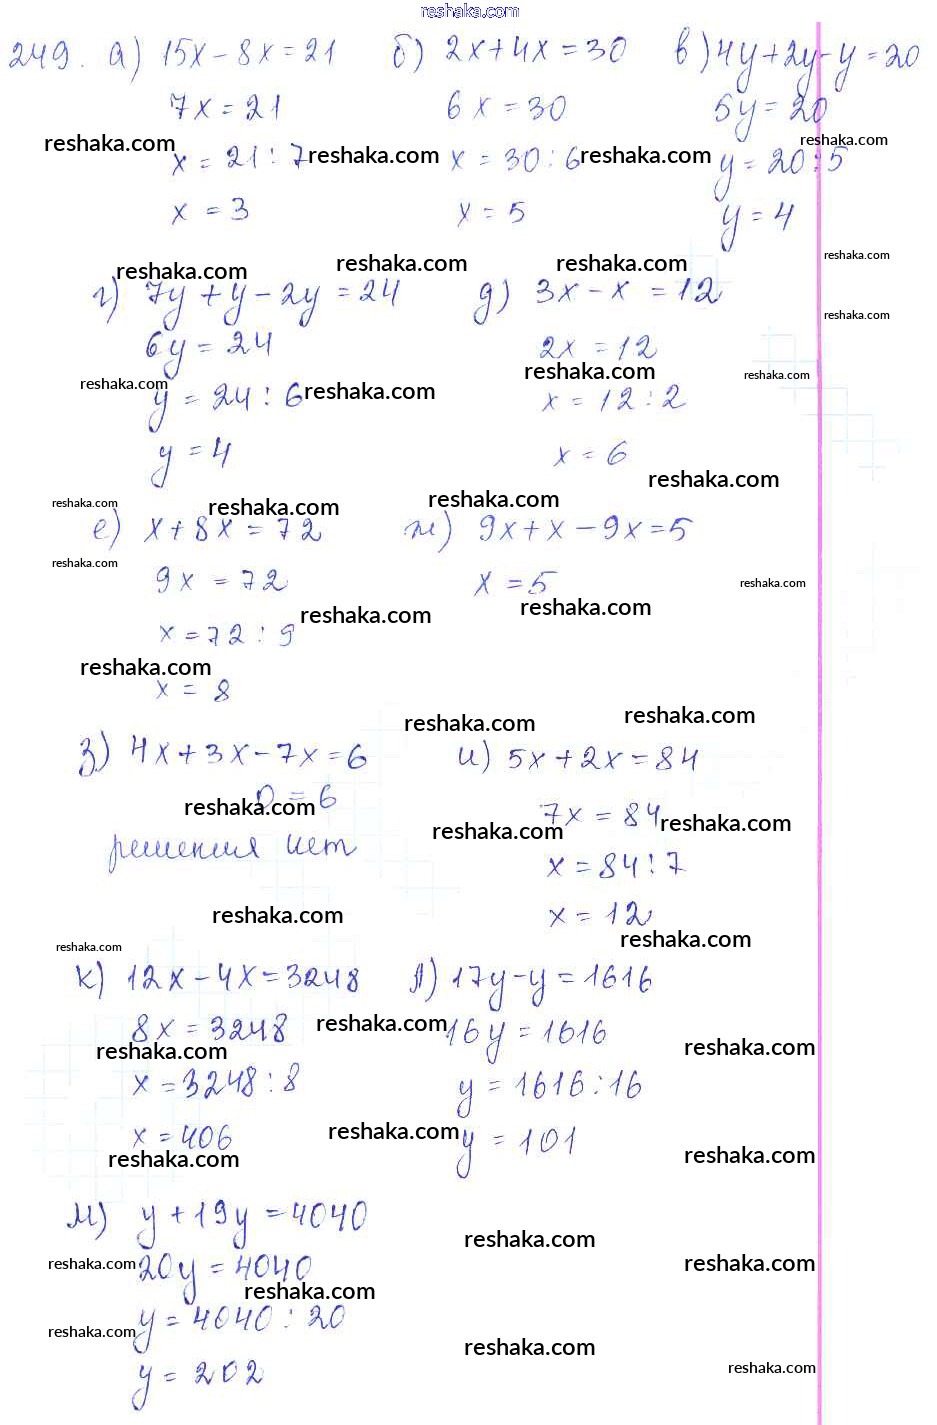 reshaka.com
249. а) 15x - 8x = 21 б) 2x + 4x = 30 в) 4y + 2y - y = 20
7x = 21 6x = 30 5y = 20
reshaka.com reshaka.com
x = 21 : 7 reshaka.com x = 30 : 6 reshaka.com y = 20 : 5
x = 3 x = 5 y = 4
reshaka.com reshaka.com reshaka.com reshaka.com
г) 7y + y - 2y = 24 д) 3x - x = 12
reshaka.com
6y = 24 2x = 12
reshaka.com reshaka.com reshaka.com
y = 24 : 6 reshaka.com x = 12 : 2
y = 4 x = 6
reshaka.com
reshaka.com reshaka.com reshaka.com
е) x + 8x = 72 ж) 9x + x - 9x = 5
reshaka.com
9x = 72 x = 5 reshaka.com
reshaka.com reshaka.com
x = 72 : 9
reshaka.com
x = 8
reshaka.com reshaka.com
з) 4x + 3x - 7x = 6 и) 5x + 2x = 84
reshaka.com 0 = 6 7x = 84 reshaka.com
reshaka.com
решения нет x = 84 : 7
reshaka.com x = 12
reshaka.com reshaka.com
к) 12x - 4x = 3248 л) 17y - y = 1616
8x = 3248 reshaka.com 16y = 1616
reshaka.com reshaka.com
x = 3248 : 8 y = 1616 : 16
x = 406 reshaka.com y = 101
reshaka.com reshaka.com
м) y + 19y = 4040
reshaka.com
reshaka.com 20y = 4040 reshaka.com
reshaka.com
reshaka.com y = 4040 : 20
reshaka.com
y = 202 reshaka.com